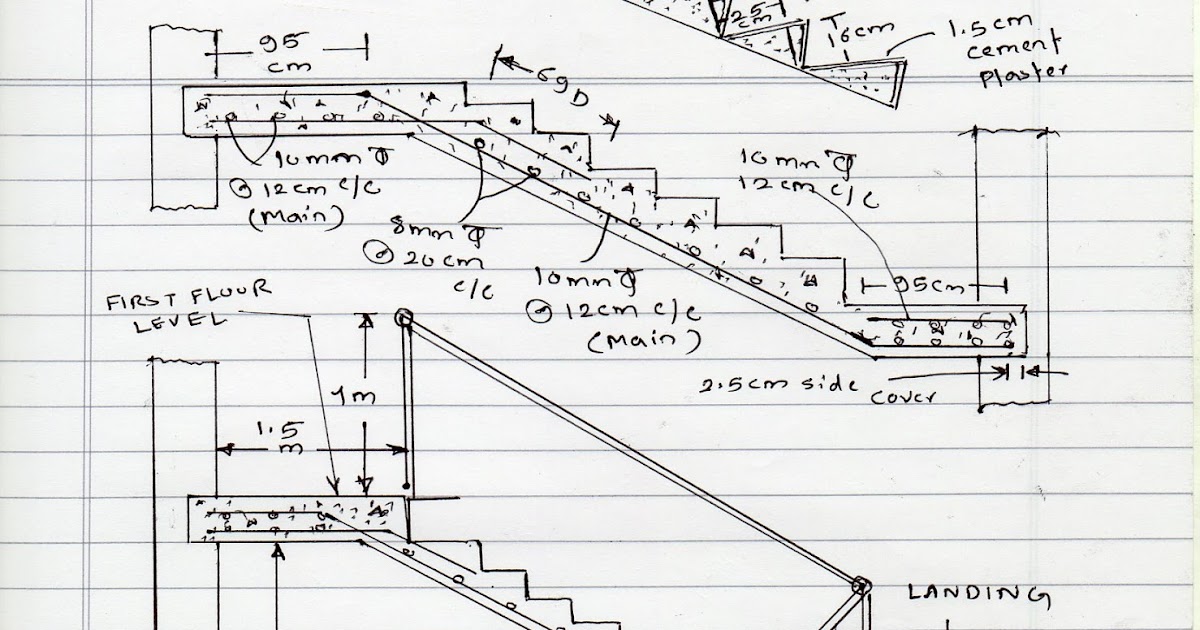 25
cm
16cm
1.5cm
cement
plaster
95
cm
69D
10mm Φ
@ 12cm c/c
(Main)
8mm Φ
@ 20cm
c/c
10mm Φ
@ 12cm c/c
(Main)
10mm Φ
12cm c/c
95cm
2.5cm side
cover
FIRST FLOOR
LEVEL
1m
1.5
m
LANDING